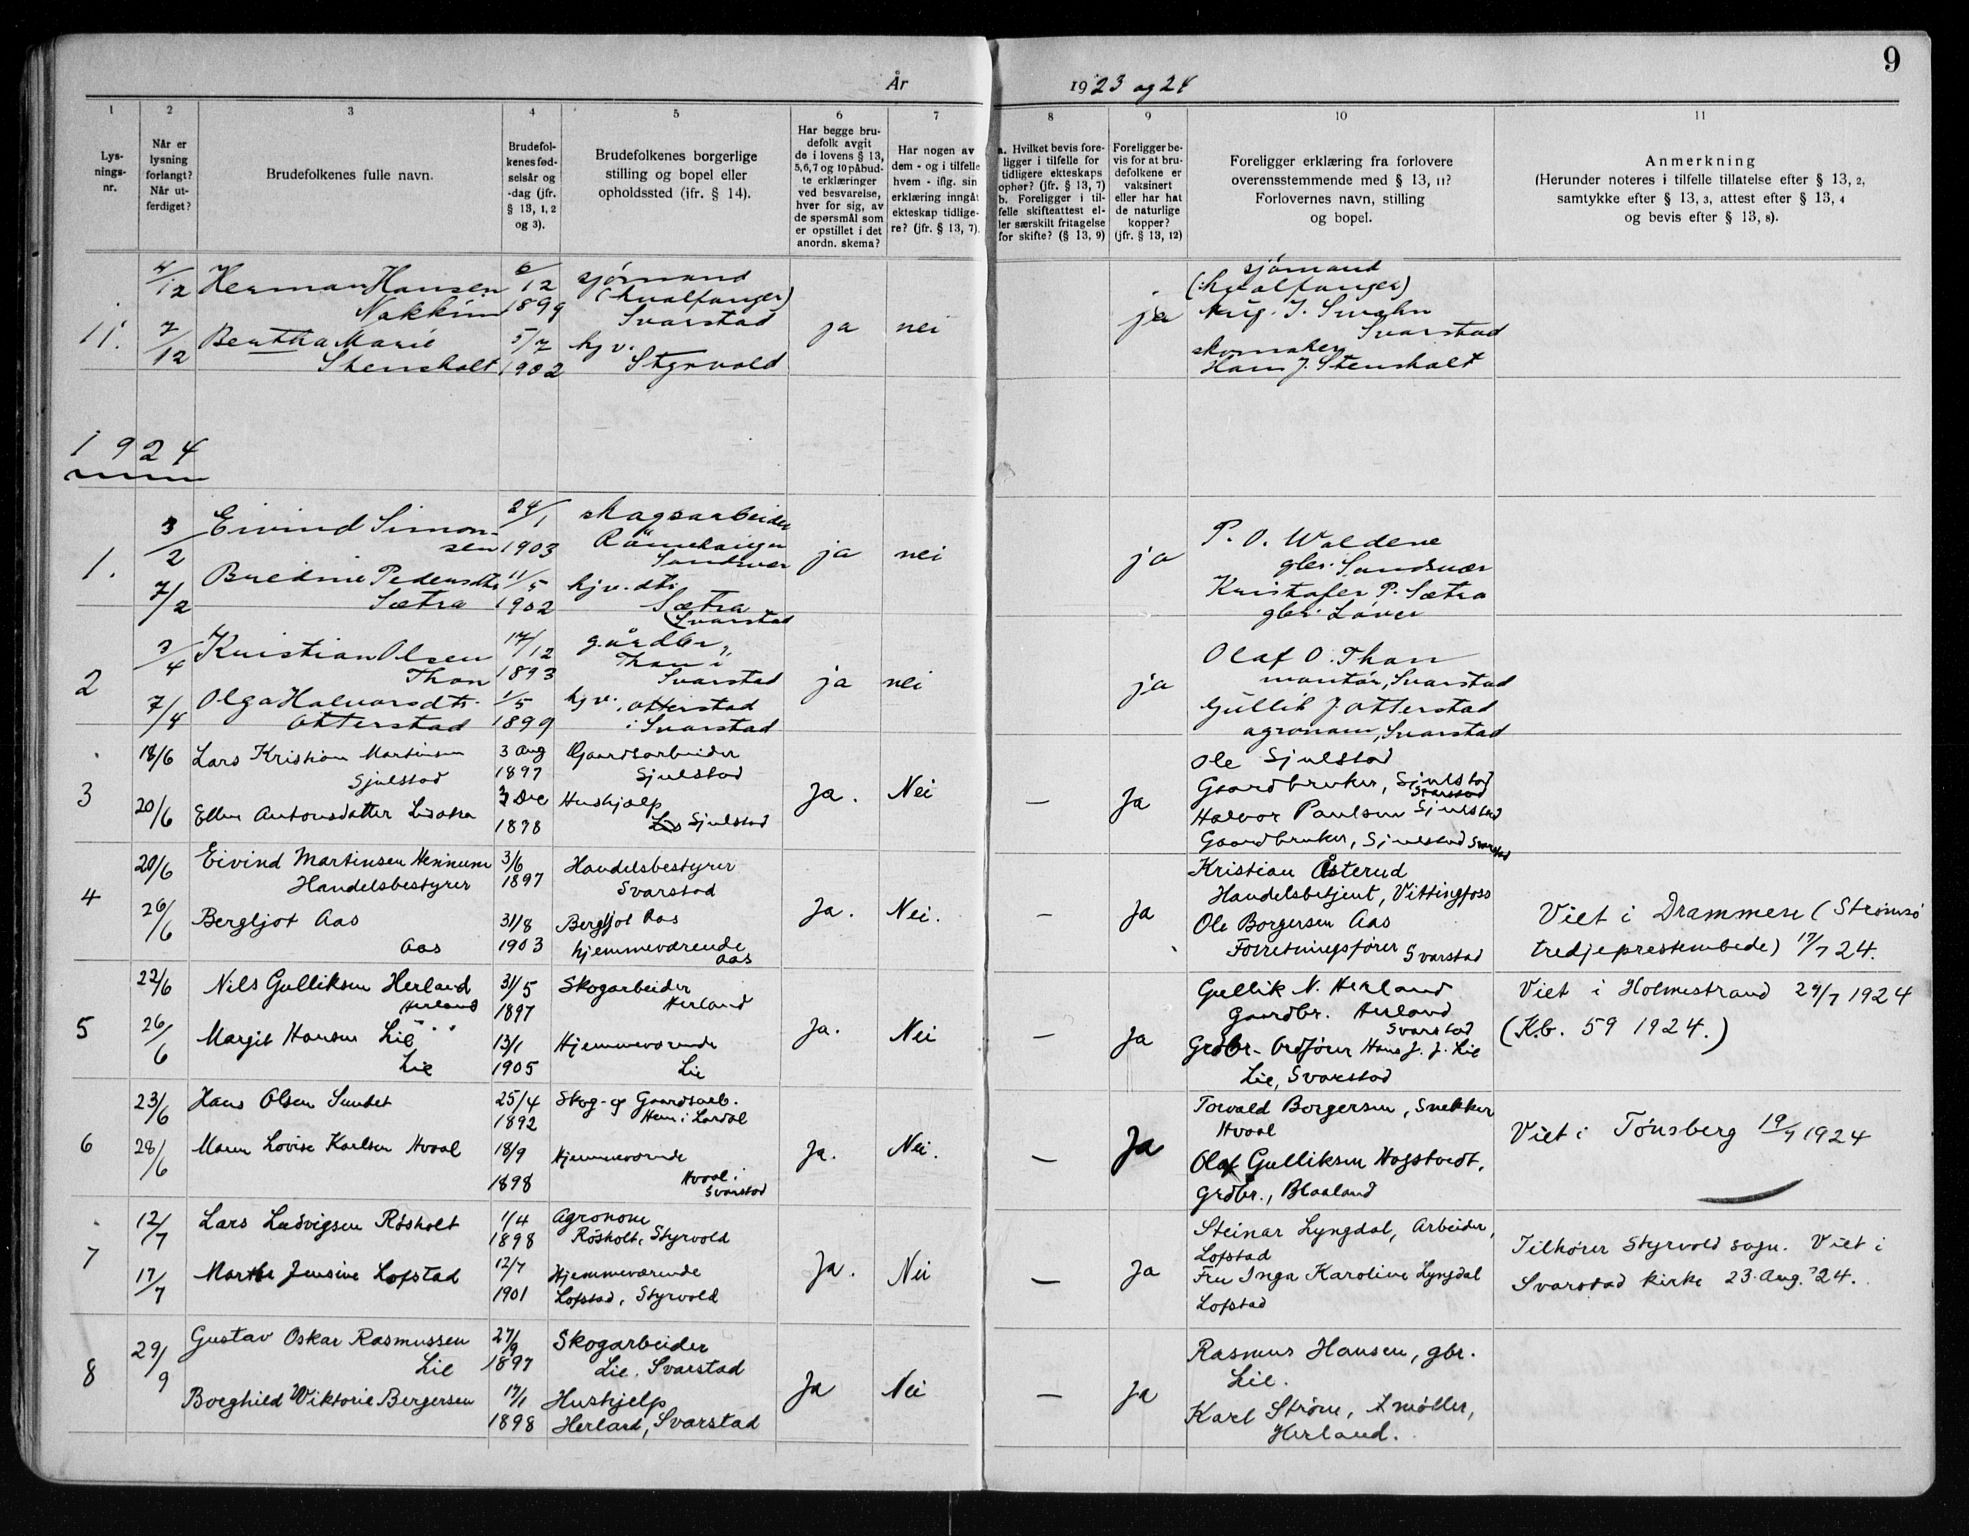 9
År 1923 og 24
1
Lys-
nings-
nr.
2
Når er
lysning
forlangt?
Når ut-
ferdiget?
3
Brudefolkenes fulle navn.
4
Brudefol-
kenes fød-
selsår og
-dag (jfr.
§ 13, 1, 2
og 3).
5
Brudefolkenes borgerlige
stilling og bopel eller
opholdssted (ifr. § 14).
6
Har begge bru-
defolk avgit
de i lovens § 13,
5,6,7 og 10 påbud-
te erklæringer
ved besvarelse,
hver for sig, av
de spørsmål som
er opstillet i det
anordn. skema?
7
Har nogen av
dem - og i tilfelle
hvem - iflg. sin
erklæring inngåt
ekteskap tidlige-
re? (jfr. § 13, 7).
8
a. Hvilket bevis fore-
ligger i tilfelle for
tidligere ekteskaps
ophør? (jfr. § 13, 7)
b. Foreligger i til-
felle skifteattest el-
ler særskilt fritagelse
for skifte? (§ 13, 9)
9
Foreligger be-
vis for at bru-
defolkene er
vaksinert
eller har hat
de naturlige
kopper?
(jfr. § 13, 12)
10
Foreligger erklæring fra forlovere
overensstemmende med § 13, 11?
Forlovernes navn, stilling
og bopel.
11
Anmerkning
(Herunder noteres i tilfelle tillatelse efter § 13, 2,
samtykke efter § 13, 3, attest efter § 13, 4
og bevis efter § 13, 8).
11.
4/12
7/12
Herman Hansen
Nakkim
Bertha Marie
Stensholt
6/12
1899
5/7
1902
sjømand
(hvalfanger)
Svarstad
hjv.
Styrvold
ja
nei
ja
sjømand
(hvalfanger)
Aug. J. Svahn
Svarstad
skomaker
Hans J. Stensholt
1924
1.
3/2
7/2
Eivind Simon-
sen
Bredine Pedersdtr.
Sætra
24/1
1903
11/5
1902
skogsarbeider
Sandsvær
hjv. dtr.
Sætra
Svarstad
ja
nei
ja
P. O. Waldene
gbr. Sandsvær
Kristofer P. Sætra
gbr. Løver
2
3/4
7/4
Kristian Olsen
Thon
Olga Halvorsdtr.
Otterstad
17/12
1893
1/5
1899
gårdbr.,
Thon i
Svarstad
hjv., Otterstad
i Svarstad
ja
nei
ja
Olaf O. Thon
montør, Svarstad
Gullik J. Otterstad
agronom, Svarstad
3
18/6
20/6
Lars Kristian Martinsen
Sjulstad
Ellen Antonsdatter
3 Aug
1897
Dec
1898
Gaardsarbeider
Sjulstad
Hushjælp
Sjulstad
Ja.
Nei
—
Ja
Ole Sjulstad
Gaardbruker, Sjulstad
Svarstad
Halvor Paulsen Sjulstad
Gaardbruker, Sjulstad Svarstad
4
20/6
26/6
Eivind Martinsen Hennum
Handelsbestyrer
Bergljot Aas
Aas
3/6
1897
31/8
1903
Handelsbestyrer
Svarstad
Bergljot Aas
hjemmeværende
Aas
Ja.
Nei.
—
Ja
Kristian Åsterud
Handelsbetjent, Vittingfoss
Ole Borgersen Aas
Forretningsfører Svarstad
Viet i Drammen (Strømsø
tredjeprestembede) 17/7 24.
5
22/6
26/6
Nils Gulliksen Herland
Herland
Margit Hansen Lie
Lie
31/5
1897
13/1
1905
Skogarbeider
Herland
Hjemmeværende
Lie
Ja.
Nei
—
Ja
Gullik N. Herland
Gaardbr. Herland
Svarstad
Grdbr. Ordfører Hans J. J. Lie
Lie, Svarstad
Viet i Holmestrand 29/7 1924
(Kb. 59 1924.)
6
23/6
28/6
Hans Olsen Sundet
Maren Lovise Karlsen Hvaal
25/4
1892
18/9
1898
Skog- og Gaardsarb.
Hem i Lardal
Hjemmeværende
Hvaal i
Svarstad
Ja.
Nei.
—
Ja
Torvald Borgersen, Snekker
Hvaal
Olaf Gulliksen Hogstvedt,
Grdbr., Blaaland
Viet i Tønsberg 19/7 1924
7
12/7
17/7
Lars Ludvigsen Røsholt
Marthe Jensine Lofstad
1/4
1898
12/7
1901
Agronom
Røsholt, Styrvold
Hjemmeværende
Lofstad, Styrvold
Ja.
Nei
—
Ja
Steinar Lyngdal, Arbeider,
Lofstad
Fru Inga Karoline Lyngdal
Lofstad
Tilhører Styrvold sogn. Viet i
Svarstad kirke 23. Aug. '24.
8
29/9
Gustav Oskar Rasmussen
Lie
Borghild Viktorie Bergersen
27/9
1897
17/1
1898
Skogarbeider
Lie, Svarstad
Hushjelp
Herland, Svarstad
Ja
Nei
—
Ja
Rasmus Hansen, gbr.
Lie.
Karl Strøm, møller,
Herland.